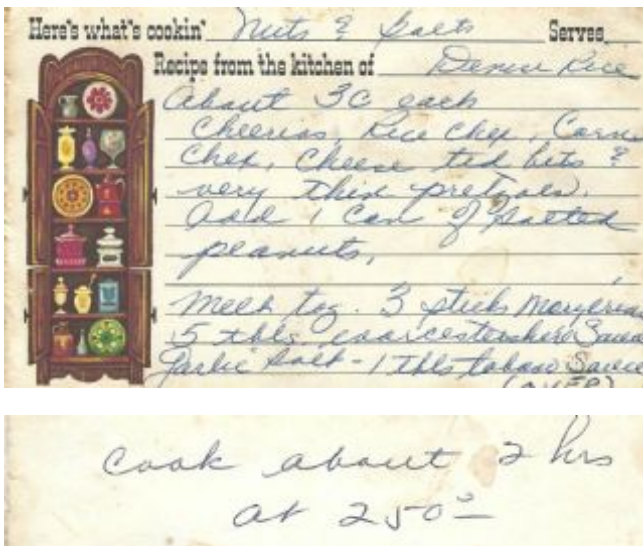 Here's what's cookin' Nuts & Salts Serves
Recipe from the kitchen of Denise Rice
About 3C each
Cheerios, Rice Chex, Corn
Chex, Cheese tid bits &
very thin pretzels.
Add 1 Can of salted
peanuts,
Melt tog. 3 sticks Margerine
5 tbls worcestershire Sauce
Garlic Salt - 1 tbls tobasco Sauce
(OVER)
Cook about 2 hrs
at 250°